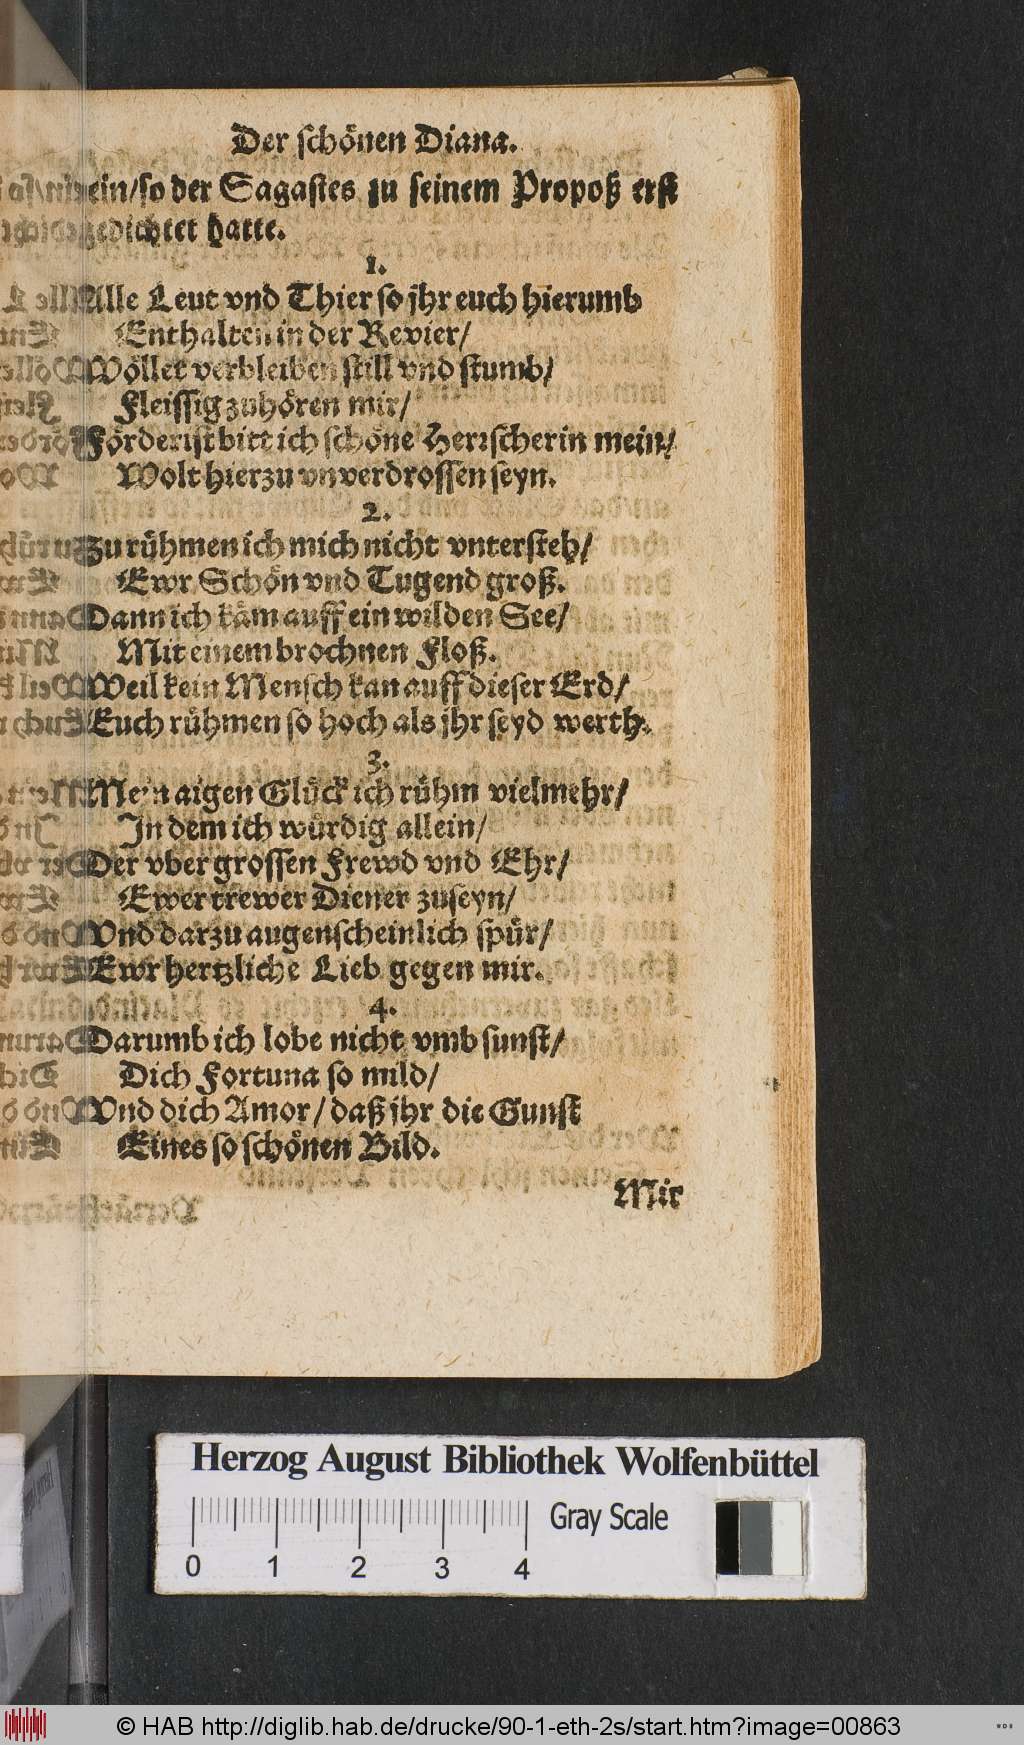 Der schönen Diana.
ein/so der Sagastes zu seinem Propoß erst
gedichtet hatte.
1.
Alle Leut vnd Thier so jhr euch hierumb
Enthalten in der Revier/
Wöllet verbleiben still vnd stumb/
Fleissig zuhören mir/
Förderist bitt ich schöne Herrscherin mein/
Wolt hierzu vnverdrossen seyn.
2.
Zu rühmen ich mich nicht vntersteh/
Ewr Schön vnd Tugend groß.
Dann ich käm auff ein wilden See/
Mit einem brochnen Floß.
Weil kein Mensch kan auff dieser Erd/
Euch rühmen so hoch als jhr seyd werth.
3.
Mein aigen Glück ich rühm vielmehr/
In dem ich würdig allein/
Der vber grossen Frewd vnd Ehr/
Ewer trewer Diener zuseyn/
Vnd darzu augenscheinlich spür/
Ewr hertzliche Lieb gegen mir.
4.
Darumb ich lobe nicht vmb sunst/
Dich Fortuna so mild/
Vnd dich Amor/ daß jhr die Gunst
Eines so schönen Bild.
Mir
Herzog August Bibliothek Wolfenbüttel
Gray Scale
0 1 2 3 4
© HAB http://diglib.hab.de/drucke/90-1-eth-2s/start.htm?image=00863